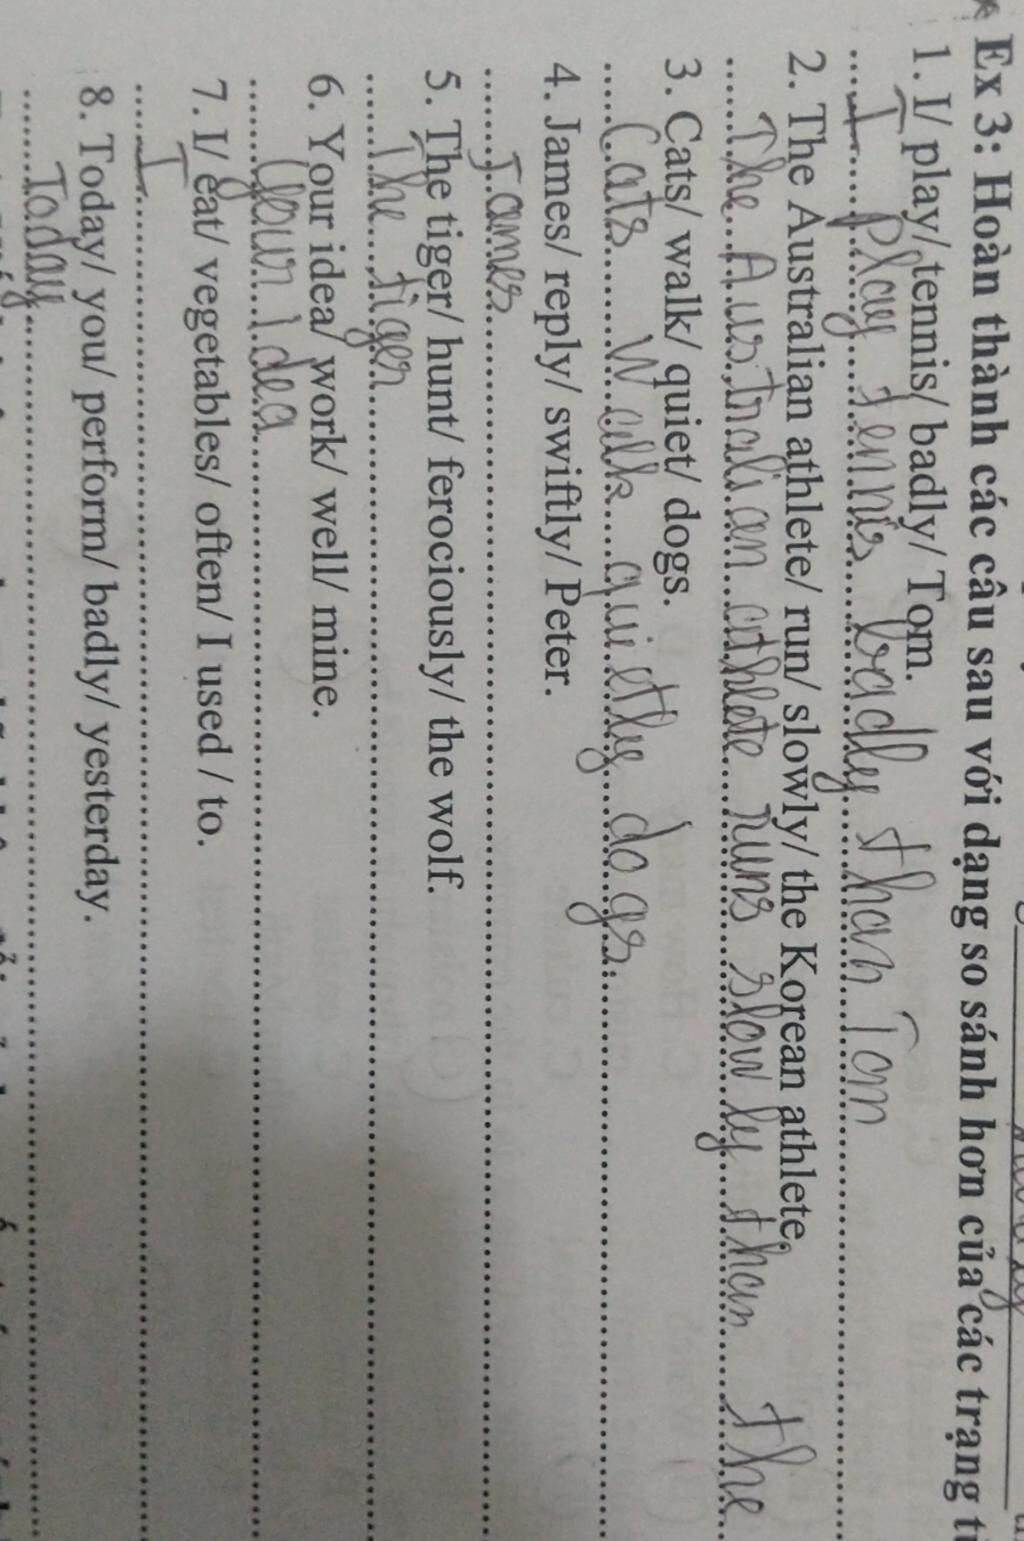 Ex 3: Hoàn thành các câu sau với dạng so sánh hơn của các trạng
1. I/ play/ tennis/ badly/ Tom.
I play tennis badly than Tom
2. The Australian athlete/ run/ slowly/ the Korean athlete.
The Australian athlete runs slowly than the
3. Cats/ walk/ quiet/ dogs.
Cats Walk quietly dogs.
4. James/ reply/ swiftly/ Peter.
James
5. The tiger/ hunt/ ferociously/ the wolf.
The tiger
6. Your idea/ work/ well/ mine.
Your Idea
7. I/ eat/ vegetables/ often/ I used / to.
I
8. Today/ you/ perform/ badly/ yesterday.
Today